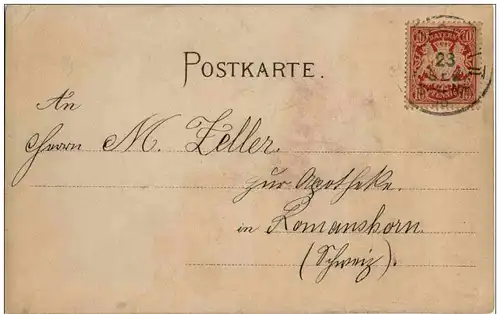 BAYERN
23
POSTKARTE.
An
Herrn M. Zeller.
zur Apotheke.
in Romanshorn.
(Schweiz).